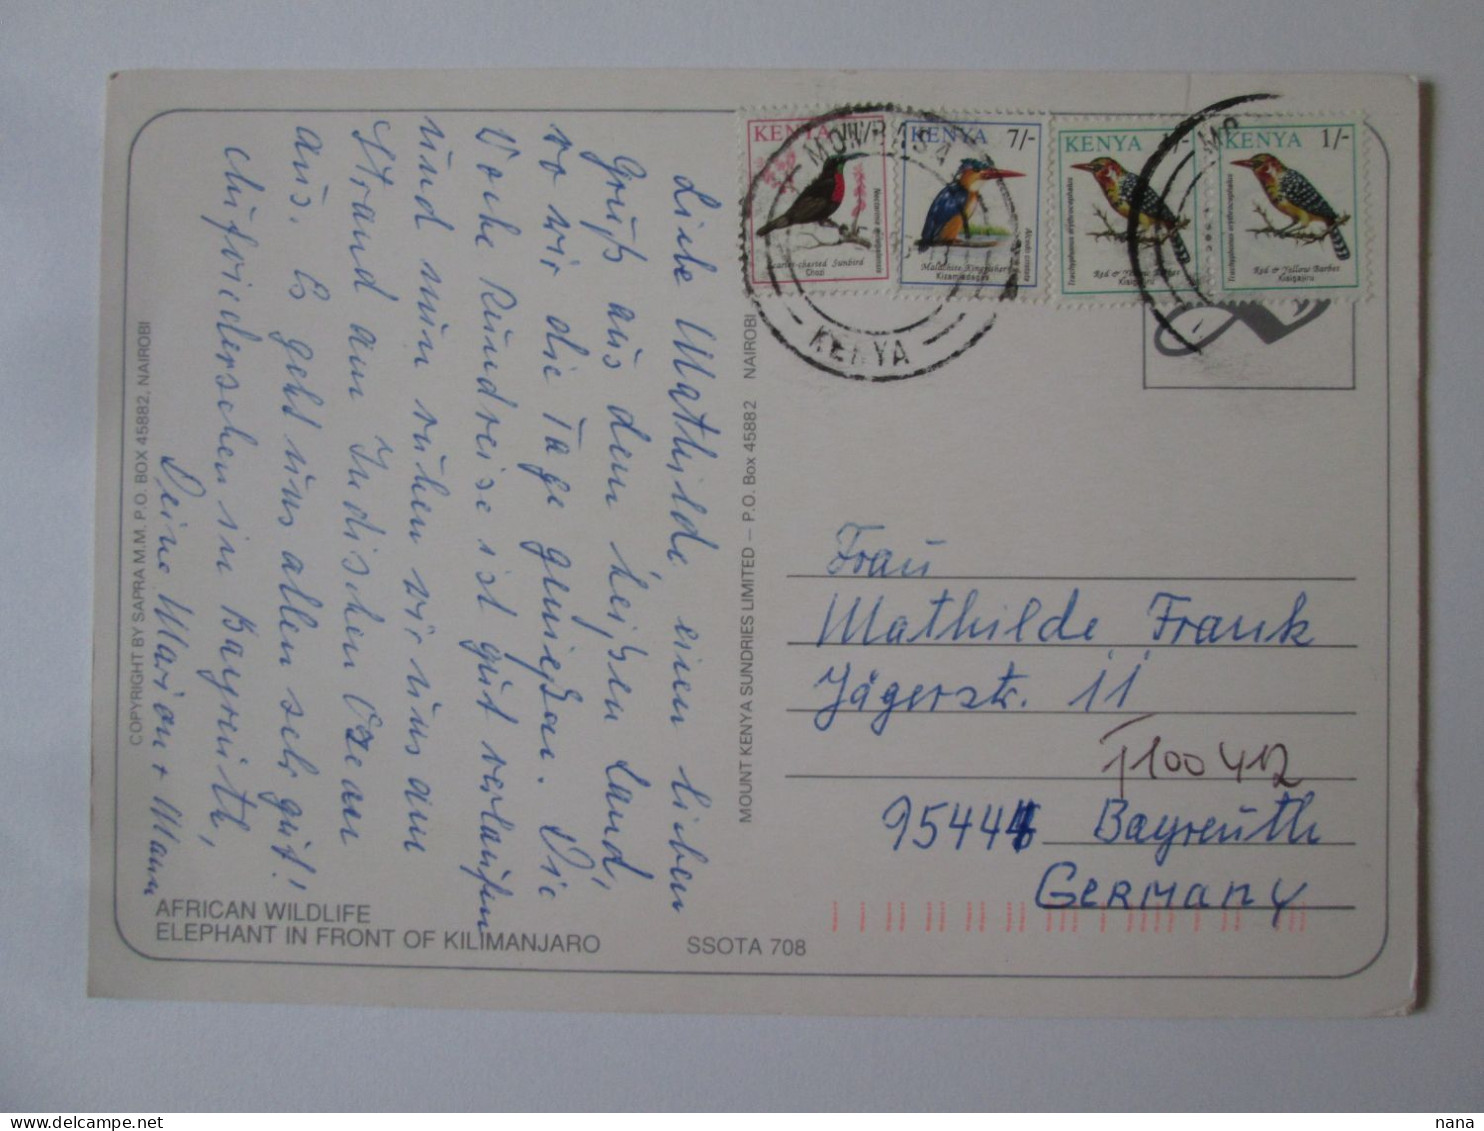 Liebe Mathilde einen lieben
Gruß aus dem heißen Land,
wo wir die Tage genießen. Die
Woche Rundreise ist gut verlaufen
und nun ruhen wir uns am
Strand am Indischen Ozean
aus. Es geht uns allen sehr gut!
Aufwiedersehen in Bayreuth,
Deine Marion +
COPYRIGHT BY SAPRA M.M. P.O. BOX 45882, NAIROBI
AFRICAN WILDLIFE
ELEPHANT IN FRONT OF KILIMANJARO
SSOTA 708
MOUNT KENYA SUNDRIES LIMITED – P.O. Box 45882 NAIROBI
KENYA
Sunbird
Chozi
KENYA 7/-
Malachite Kingfisher
Alcedo cristata
KENYA
Red & Yellow Barbet
Trachyphonus erythrocephalus
KENYA 1/-
Red & Yellow Barbet
Trachyphonus erythrocephalus
MOMBASA
KENYA
Frau
Mathilde Frank
Jägerstr. 11
95444 Bayreuth
GERMANY